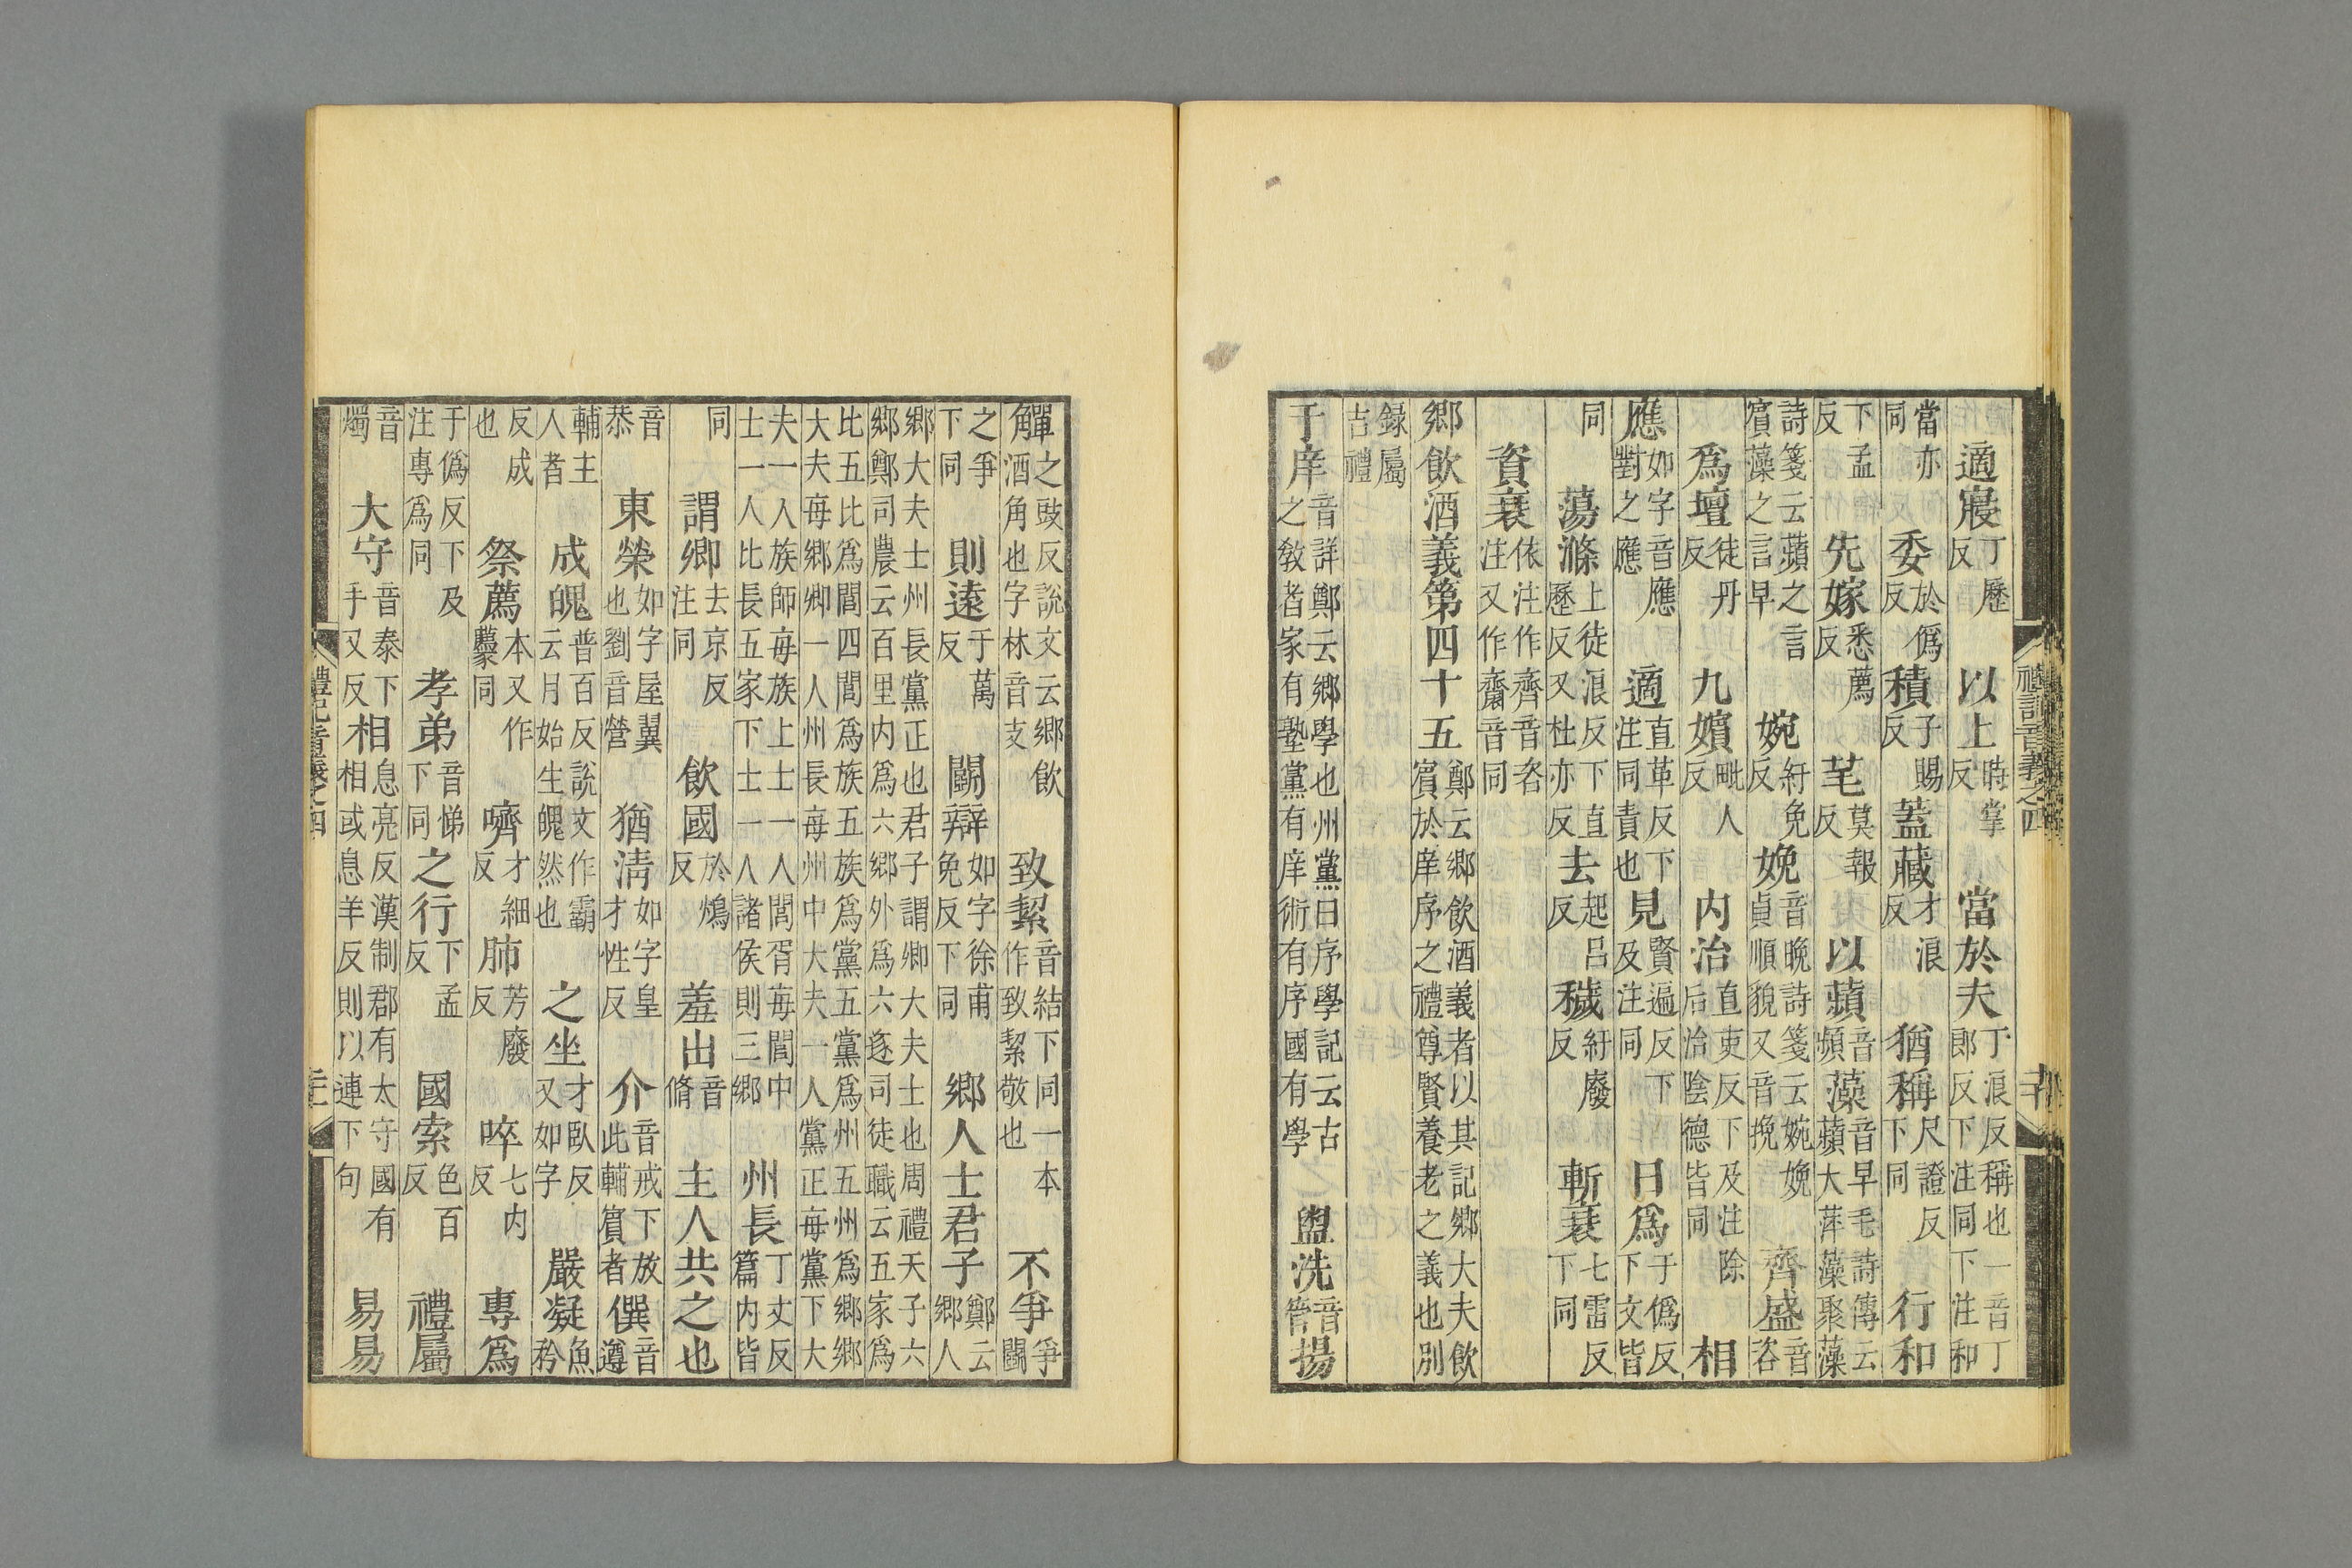 禮記音義之四
適寢丁歷反以上時掌反當於夫丁浪反稱也一音丁郎反下注同下注和
當亦同委於僞反積子賜反蓋藏才浪反猶稱尺證反下同行和
下孟反先嫁悉薦反芼莫報反以蘋音頻藻音早毛詩傳云蘋大萍藻聚藻
詩箋云蘋之言賔藻之言早婉紆免反娩音晚詩箋云婉娩貞順貌又音挽齊盛音咨
爲壇徒丹反九嬪毗人反内治直吏反下及注除后治陰德皆同相
應如字音應對之應適直革反下注同責也見賢遍反下及注同日爲于僞反下文皆
同蕩滌上徒浪反下直歷反又杜亦反去起呂反穢紆廢反斬衰七雷反下同
資衰依注作齊音咨注又作齋音同
鄉飲酒義第四十五鄭云鄉飲酒義者以其記鄉大夫飲賔於庠序之禮尊賢養老之義也別
録屬吉禮
于庠音詳鄭云鄉學也州黨曰序學記云古之敎者家有塾黨有庠術有序國有學盥洗音管揚
觶之豉反說文云鄉飲酒角也字林音支致絜音結下同一本作致絜敬也不爭爭鬭
之爭下同則遠于萬反鬭辯如字徐甫免反下同鄉人士君子鄭云鄉人
鄉大夫士州長黨正也君子謂卿大夫士也周禮天子六鄉鄭司農云百里内爲六鄉外爲六遂司徒職云五家爲
比五比爲閭四閭爲族五族爲黨五黨爲州五州爲鄉鄉大夫每鄉卿一人州長每州中大夫一人黨正每黨下大
夫一人族師每族上士一人閭胥每閭中士一人比長五家下士一人諸侯則三鄉州長丁丈反篇内皆
同謂卿去京反注同飲國於鴆反羞出音脩主人共之也
音恭東榮如字屋翼也劉音營猶淸如字皇才性反介音戒下放此輔賔者僎音遵
輔主人者成魄普百反說文作霸云月始生魄然也之坐才臥反又如字嚴凝魚矜
反成也祭薦本又作麷同嚌才細反肺芳廢反啐七内反專爲
于僞反下及注專爲同孝弟音悌下同之行下孟反國索色百反禮屬
音燭大守音泰下手又反相息亮反漢制郡有太守國有相或息羊反則以連下句易易
禮記音義之四